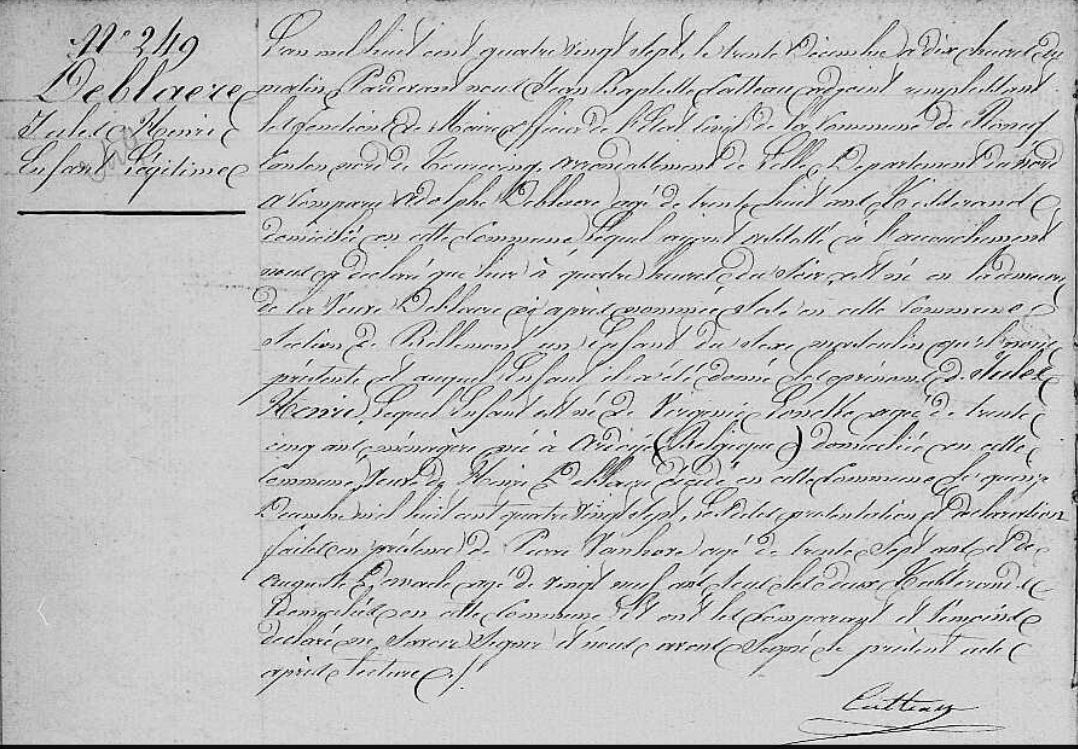 N° 249
Deblaere
Jules Henri
Enfant Légitime
L'an mil huit cent quatre vingt sept, le trente Décembre à dix heures du
matin, Pardevant nous Jean Baptiste Catteau adjoint remplissant
les fonctions de Maire officier de l'Etat Civil de la Commune de
Canton nord de Tourcoing, arrondissement de Lille, Département du nord
a comparu Adolphe Deblaere agé de trente huit ans,
domicilié en cette commune, lequel ayant assisté à l'accouchement
nous a déclaré que hier à quatre heures du soir, est né en la demeure
de la Veuve Deblaere ci après nommée, sise en cette commune
section de un Enfant du sexe masculin qu'il nous
présente et auquel Enfant il a été donné les prénoms de Jules
Henri, lequel Enfant est né de Virginie agée de trente
cinq ans, ménagère, née à Ardoye (Belgique) domiciliée en cette
commune, Veuve de Henri Deblaere décédé en cette commune le quinze
Décembre mil huit cent quatre vingt sept, Lesdites présentation et Déclaration
faites en présence de Pierre Vanhove agé de trente sept ans et de
Auguste agé de vingt neuf ans, tous les deux
Domiciliés en cette commune Et ont les comparant et témoins
déclaré ne savoir signer et nous avons signé le présent acte
après lecture ./.
Catteau